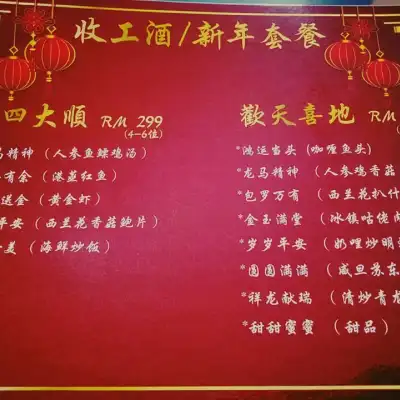 收工酒/新年套餐
四大順 RM 299
(4-6位)
马精神 (人参鱼鳔鸡汤)
有余 (港蒸红鱼)
送金 (黄金虾)
平安 (西兰花香菇鲍片)
美 (海鲜炒饭)
歡天喜地 RM
*鸿运当头 (咖喱鱼头)
*龙马精神 (人参鸡香菇
*包罗万有 (西兰花扒什
*金玉满堂 (冰镇咕佬
*岁岁平安 (奶哩炒明
*圆圆满满 (咸旦苏东
*祥龙献瑞 (清炒青龙
*甜甜蜜蜜 (甜品)